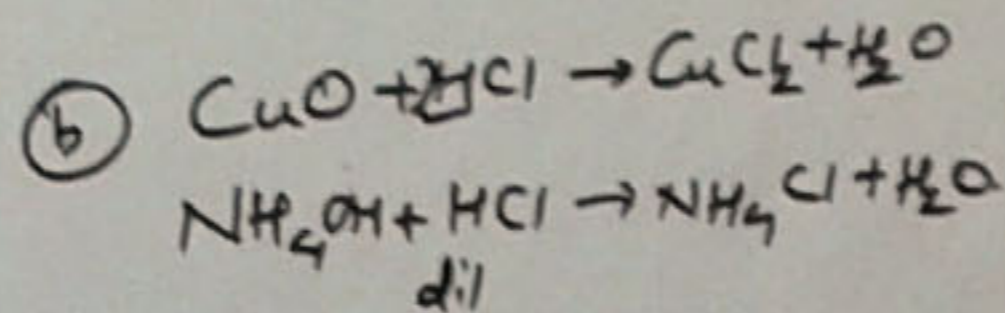 b CuO + 2HCl → CuCl₂ + H₂O
NH₄OH + HCl → NH₄Cl + H₂O
dil